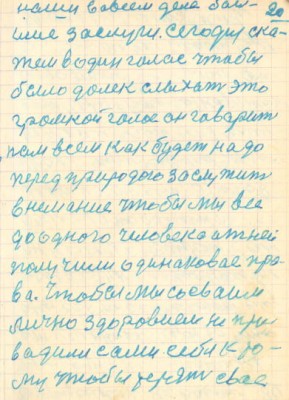 20
наши в всем дела бол-
шие заслуги. сегодня ска-
жем в один голос чтобы
было далек слыхат это
громкой голос он гаварит
нам всем как будет надо
перед природаю заслужит
внемание чтобы мы все
до одного человека от ней
получили одинаковае пра-
ва. Чтобы мы своеваим
лично здоровием не при
вадили сами себя к ро-
му чтобы терят свае